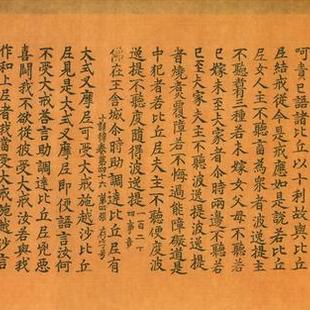 呵責已語諸比丘以十利故與比丘
尼結戒從今是戒應如是說若比丘
尼女人主不聽畜為衆者波逸提主
不聽者有三種若未嫁女父母不聽若
已嫁未至夫家者尒時兩邊不聽若
已至夫家夫主不聽波逸提波逸提
者燒煮覆障若不悔過能障礙道是
中犯者若比丘尼夫主不聽便度波
逸提不聽度隨得波逸提
佛在王舍城尒時助調達比丘尼有
大式叉摩尼可與大戒施越沙比丘
尼見是大式叉摩尼即便語言汝何
不受大戒荅言助調達比丘尼兇惡
喜鬪我不欲從彼受大戒汝若與我
作和上尼者我當受大戒施越沙言